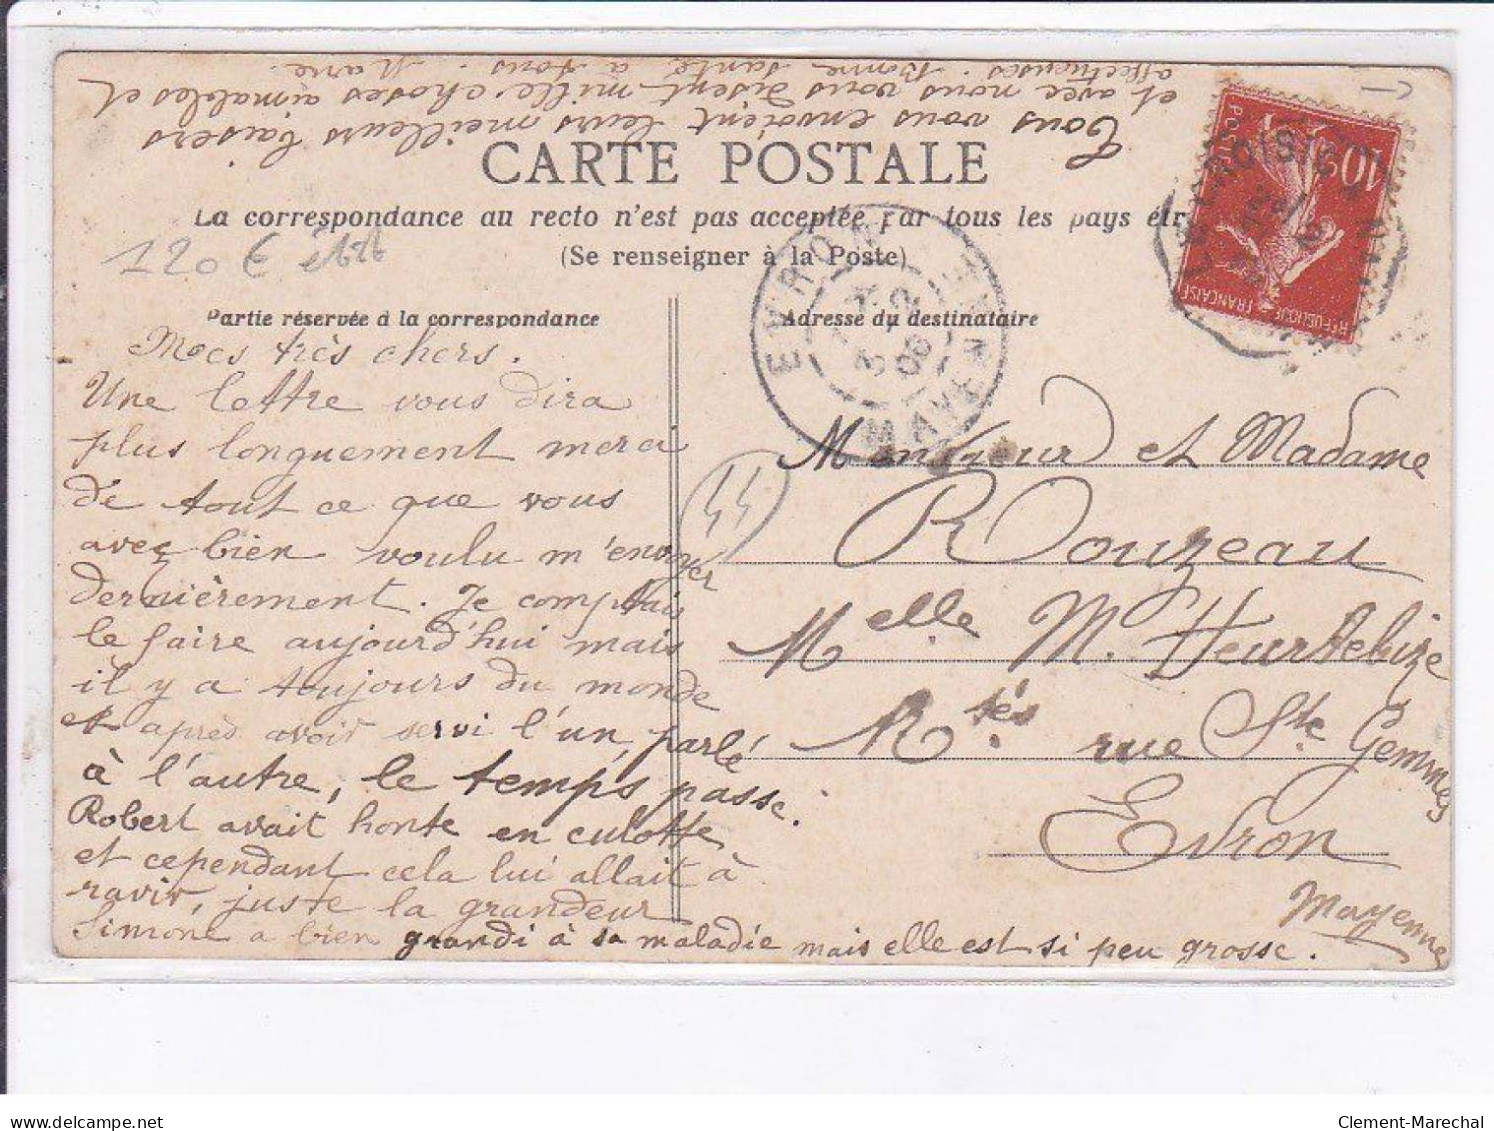 CARTE POSTALE
La correspondance au recto n'est pas acceptée par tous les pays étr
(Se renseigner à la Poste)
Partie réservée à la correspondance
Mes très chers.
Une lettre vous dira
plus longuement merci
de tout ce que vous
avez bien voulu m'envoyer
dernièrement. Je comptais
le faire aujourd'hui mais
il y a toujours du monde
et après avoir servi l'un, parlé
à l'autre, le temps passe.
Robert avait honte en culotte
et cependant cela lui allait à
ravir, juste la grandeur
Simone a bien grandi à sa maladie mais elle est si peu grosse.
Tous vous envoient leurs meilleurs baisers
et avec nous vous disent mille choses aimables et
affectueuses. Bonne santé à tous. Marie
Adresse du destinataire
Monsieur et Madame
Rouzeau
Melle M. Heurtebize
Rtés rue Ste Gemmes
Evron
Mayenne
120 €
44
EVRON
MAYENNE
10c
POSTES
REPUBLIQUE FRANÇAISE
Clement-Marechal